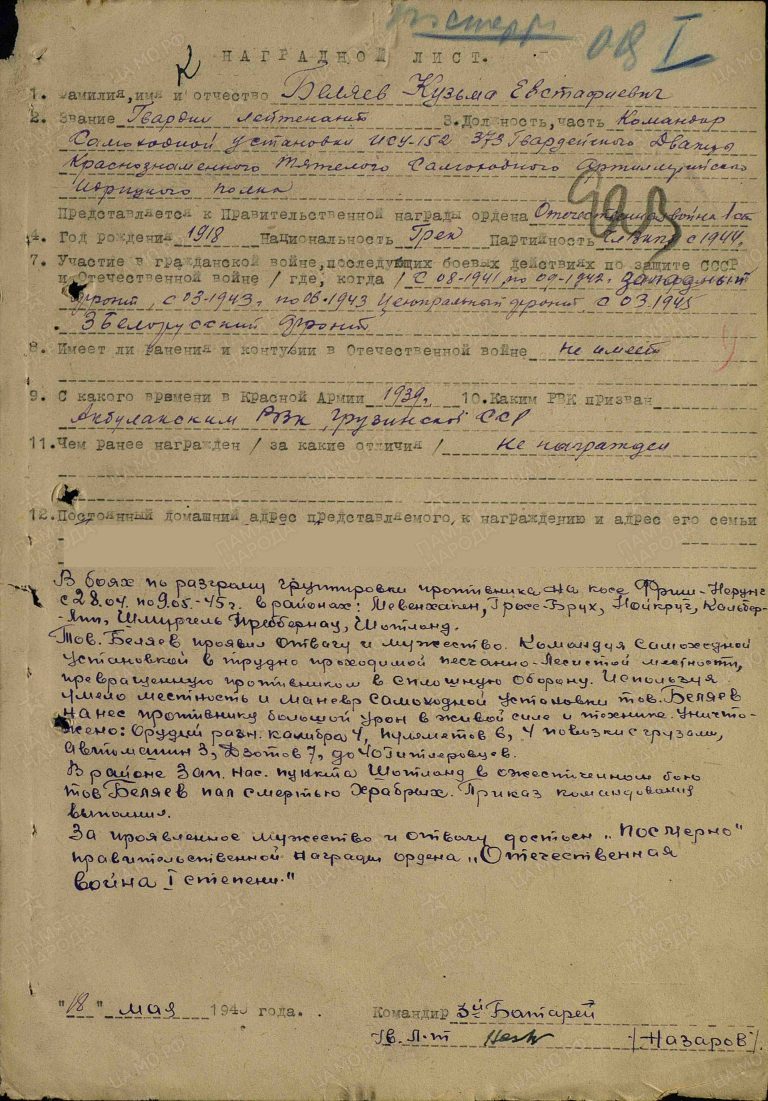 ОВ I
НАГРАДНОЙ ЛИСТ.
1. Фамилия, имя и отчество Беляев Кузьма Евстафиевич
2. Звание Гвардии лейтенант 3. Должность, часть Командир
Самоходной установки ИСУ-152 373 Гвардейского Дважды
Краснознаменного Тяжелого Самоходного Артиллерийского
полка
Представляется к Правительственной награды ордена Отечественная война 1 ст
4. Год рождения 1918 Национальность Грек Партийность с 1944.
7. Участие в гражданской войне, последующих боевых действиях по защите СССР
и Отечественной войне / где, когда / с 08-1941 по 09-1942г Западный
фронт, с 03-1943г по 06-1943 Центральный фронт, с 03.1945
3 Белорусский фронт
8. Имеет ли ранения и контузии в Отечественной войне не имеет
9. С какого времени в Красной Армии 1939г. 10. Каким РВК призван
РВК Грузинской ССР
11. Чем ранее награжден / за какие отличия / не награжден
12. Постоянный домашний адрес представляемого, к награждению и адрес его семьи
В боях по разгрому группировки противника на косе Фриш-Нерунг
с 28.04. по 9.05.-45г. в районах: Гросс-Брух, Нойкруг,
Шмургель, Шотланд.
Тов. Беляев проявил отвагу и мужество. Командуя самоходной
установкой в трудно проходимой песчанно-лесистой местности,
превращенную противником в сплошную оборону. Используя
умело местность и маневр самоходной установки тов. Беляев
нанес противнику большой урон в живой силе и технике. Уничто-
жено: Орудий разн. калибра 4, пулеметов 6, 4 повозки с грузами,
автомашин 3, Дзотов 7, до 40 гитлеровцев.
В районе Зап. нас. пункта Шотланд в ожесточенном бою
тов Беляев пал смертью храбрых. Приказ командования
выполнил.
За проявленное мужество и отвагу достоен "посмерно"
правительственной награды ордена "Отечественная
война I степени."
"18" мая 194 года. Командир 3й Батареи
Гв. Л-т /Назаров/
ПАМЯТЬ НАРОДА
ЦАМО.РФ